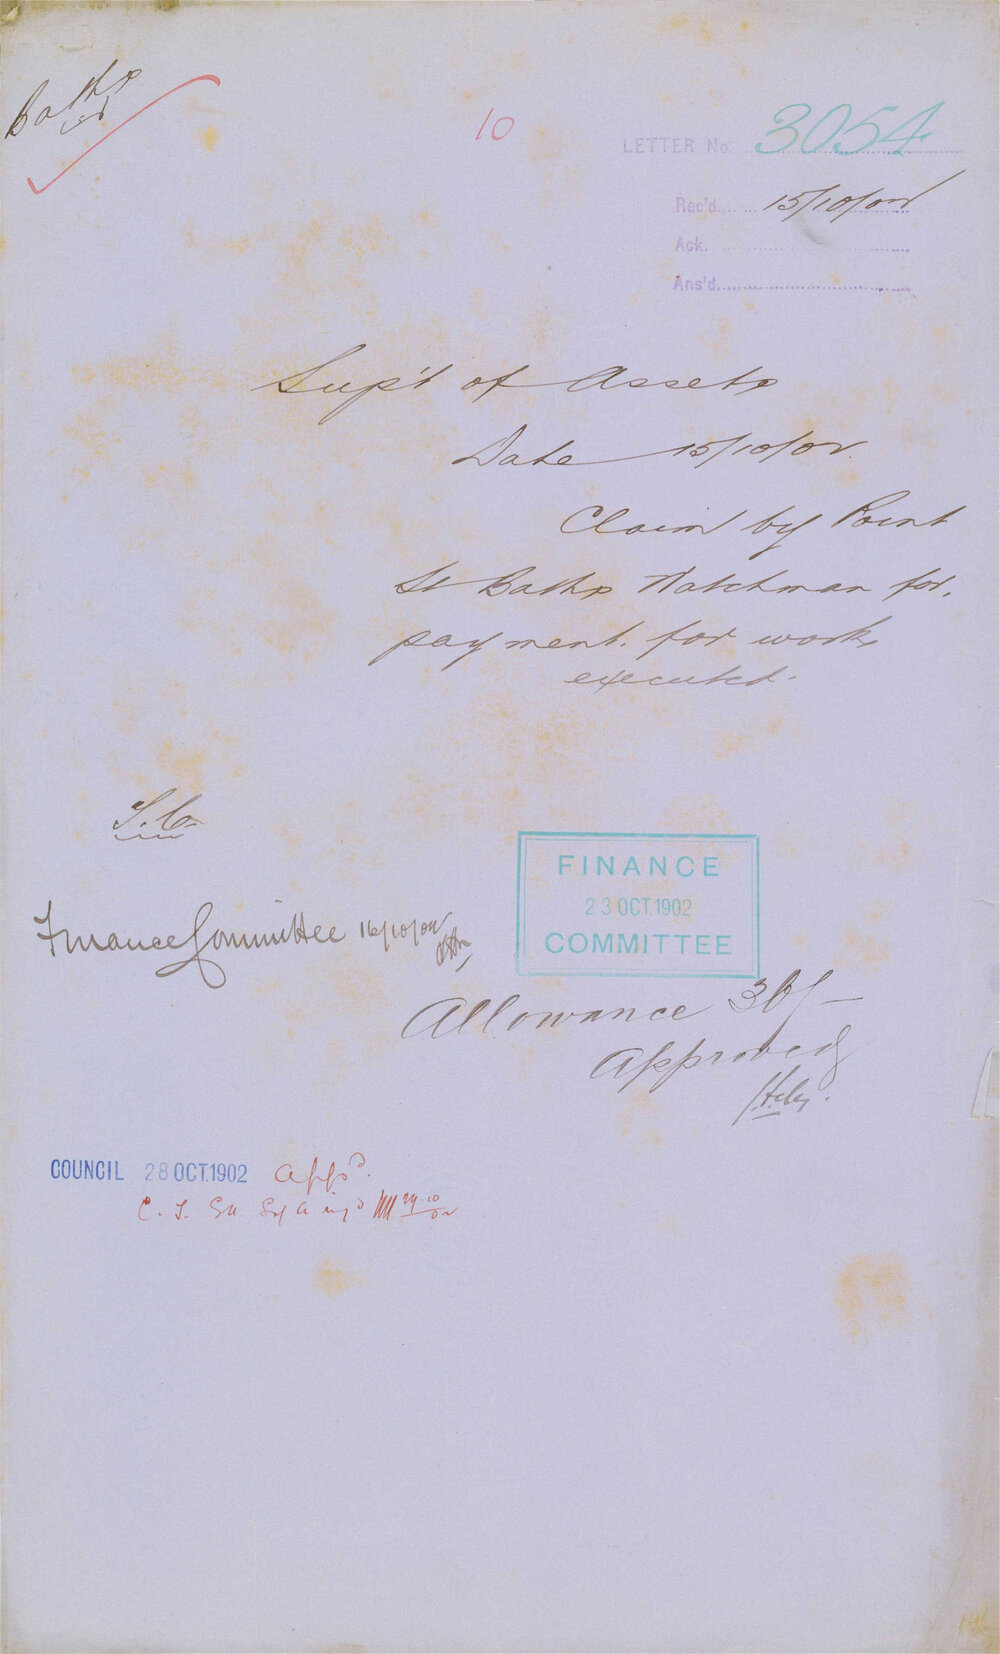 Baths
10
LETTER No. 3054
Rec'd. 15/10/02
Ack.
Ans'd.
Sup't of Assets
Date 15/10/02.
Claim by Point
St Baths Watchman for.
payment. for work
executed.
T.C.
Finance Committee 16/10/02
FINANCE
23 OCT. 1902
COMMITTEE
Allowance 30/-
Approved
COUNCIL 28 OCT. 1902 App'd.
C. T.